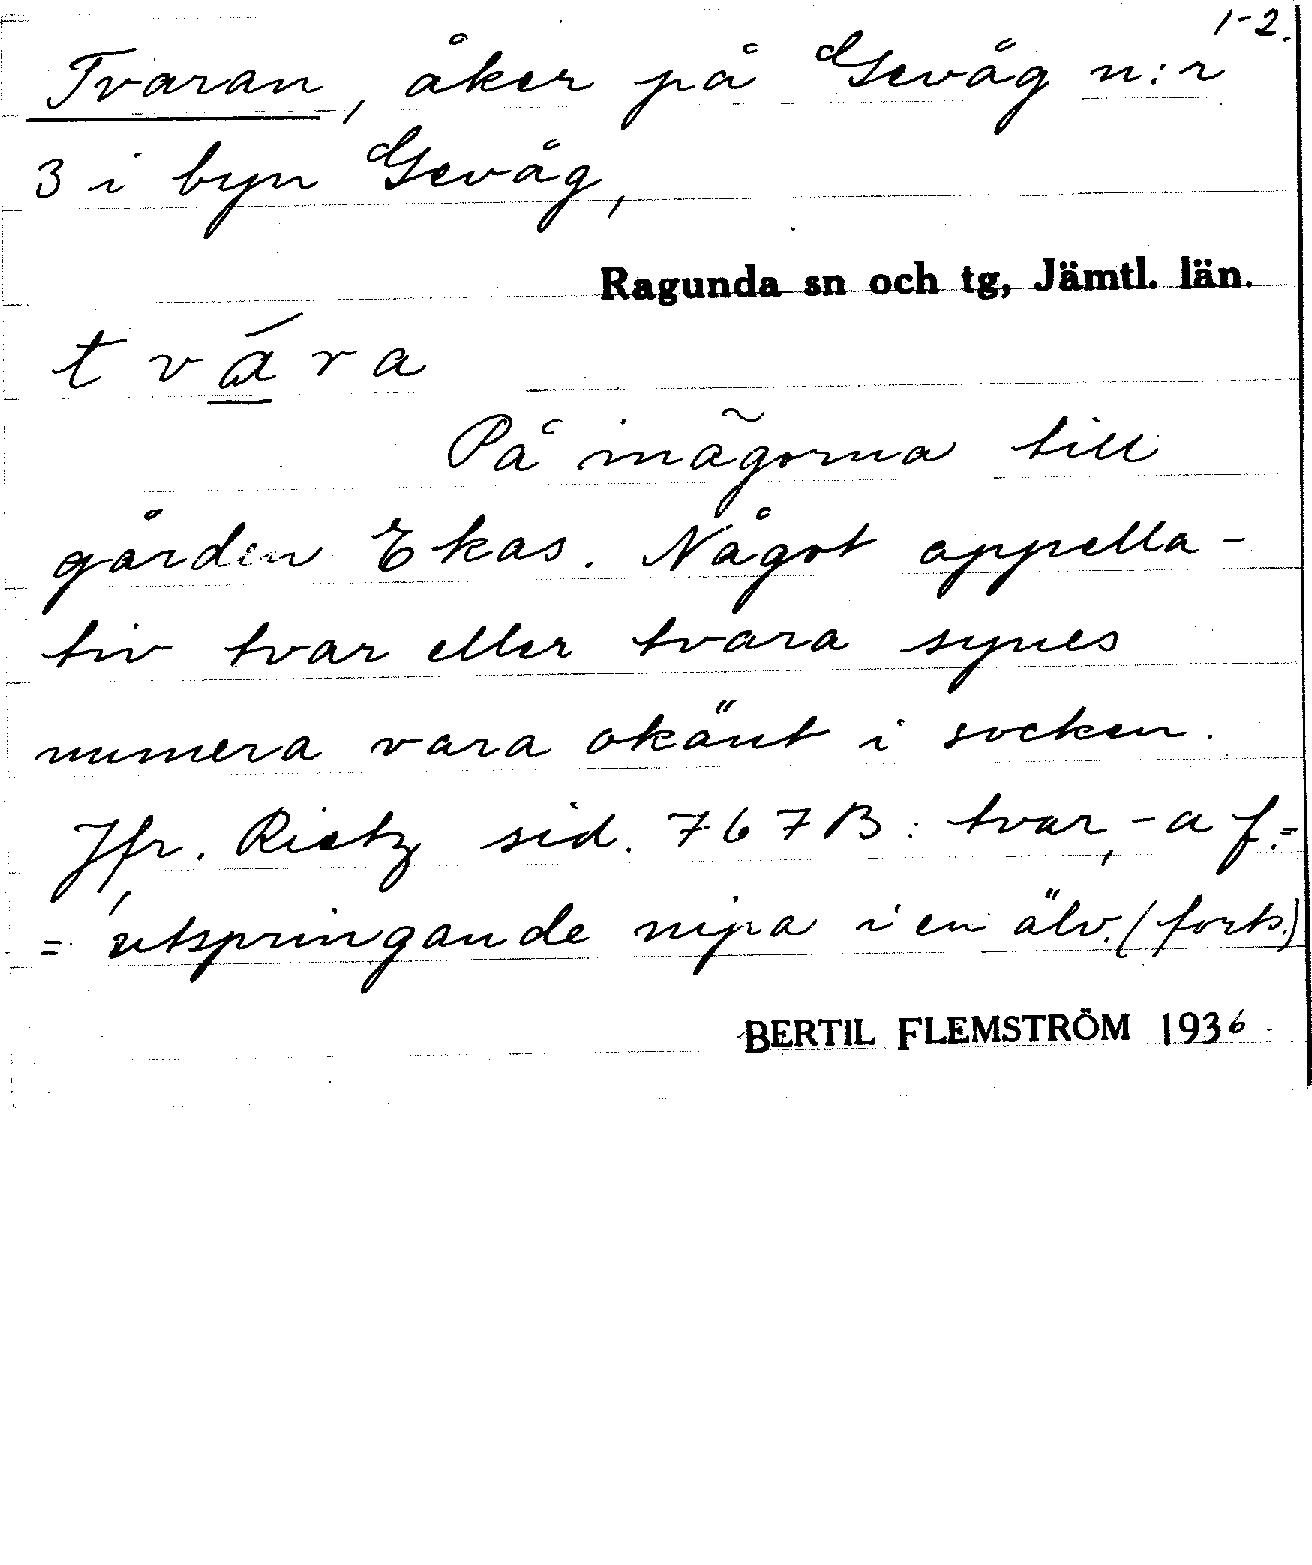 1-2.
Tvaran, åker på Gevåg n:r
3 i byn Gevåg,
Ragunda sn och tg, Jämtl. län.
tvára
På inägorna till
gården Ekas. Något appella-
tiv tvar eller tvara synes
numera vara okänt i socken.
Jfr. Rietz sid. 767B: tvar, -a f.=
= utspringande nipa i en älv. (forts.)
BERTIL FLEMSTRÖM 1936